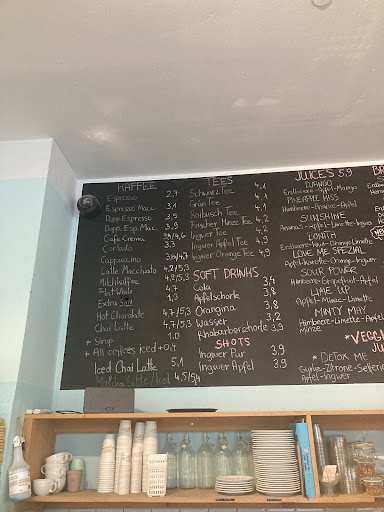 KAFFEE
Espresso 2,7
Espresso Macc. 3,1
Dopp. Espresso 3,5
Dopp. Esp. Macc. 3,9
Cafe Crema 3,4/4,6
Cortado 3,3
Cappuccino 3,6/4,7
Latte Macchiato 4,2/5,3
Milchkaffee 4,2/5,3
Flat White 4,7
Extra Shot 1,3
Hot Chocolate 4,7/5,3
Chai Latte 4,7/5,3
+ Sirup 1,0
+ All coffees iced +0,4
Iced Chai Latte 5,1
Matcha Latte/Iced 4,5/5,4
TEES
Schwarz Tee 4,1
Grün Tee 4,1
Roibusch Tee 4,1
Frischer Minze Tee 4,2
Ingwer Tee 4,2
Ingwer Apfel Tee 4,9
Ingwer Orange Tee 4,9
SOFT DRINKS
Cola 3,4
Apfelschorle 3,8
Orangina 3,8
Wasser 3,2
Rhabarberschorle 3,9
SHOTS
Ingwer Pur 3,9
Ingwer Apfel 3,9
JUICES 5,9
DJANGO
Erdbeere-Apfel-Mango
PINEAPPLE KISS
Himbeere-Ananas-Apfel
SUNSHINE
Ananas-Apfel-Limette-Ingwer
LOVE ME SPEZIAL
Apfel-Karotte-Orange-Ingwer
SOUR POWER
Himbeere-Grapefruit-Apfel
LIME UP
Apfel-Minze-Limette
MINTY MAY
Himbeere-Limette-Apfel
Minze
*DETOX ME
Gurke-Zitrone-Sellerie
Apfel-Ingwer